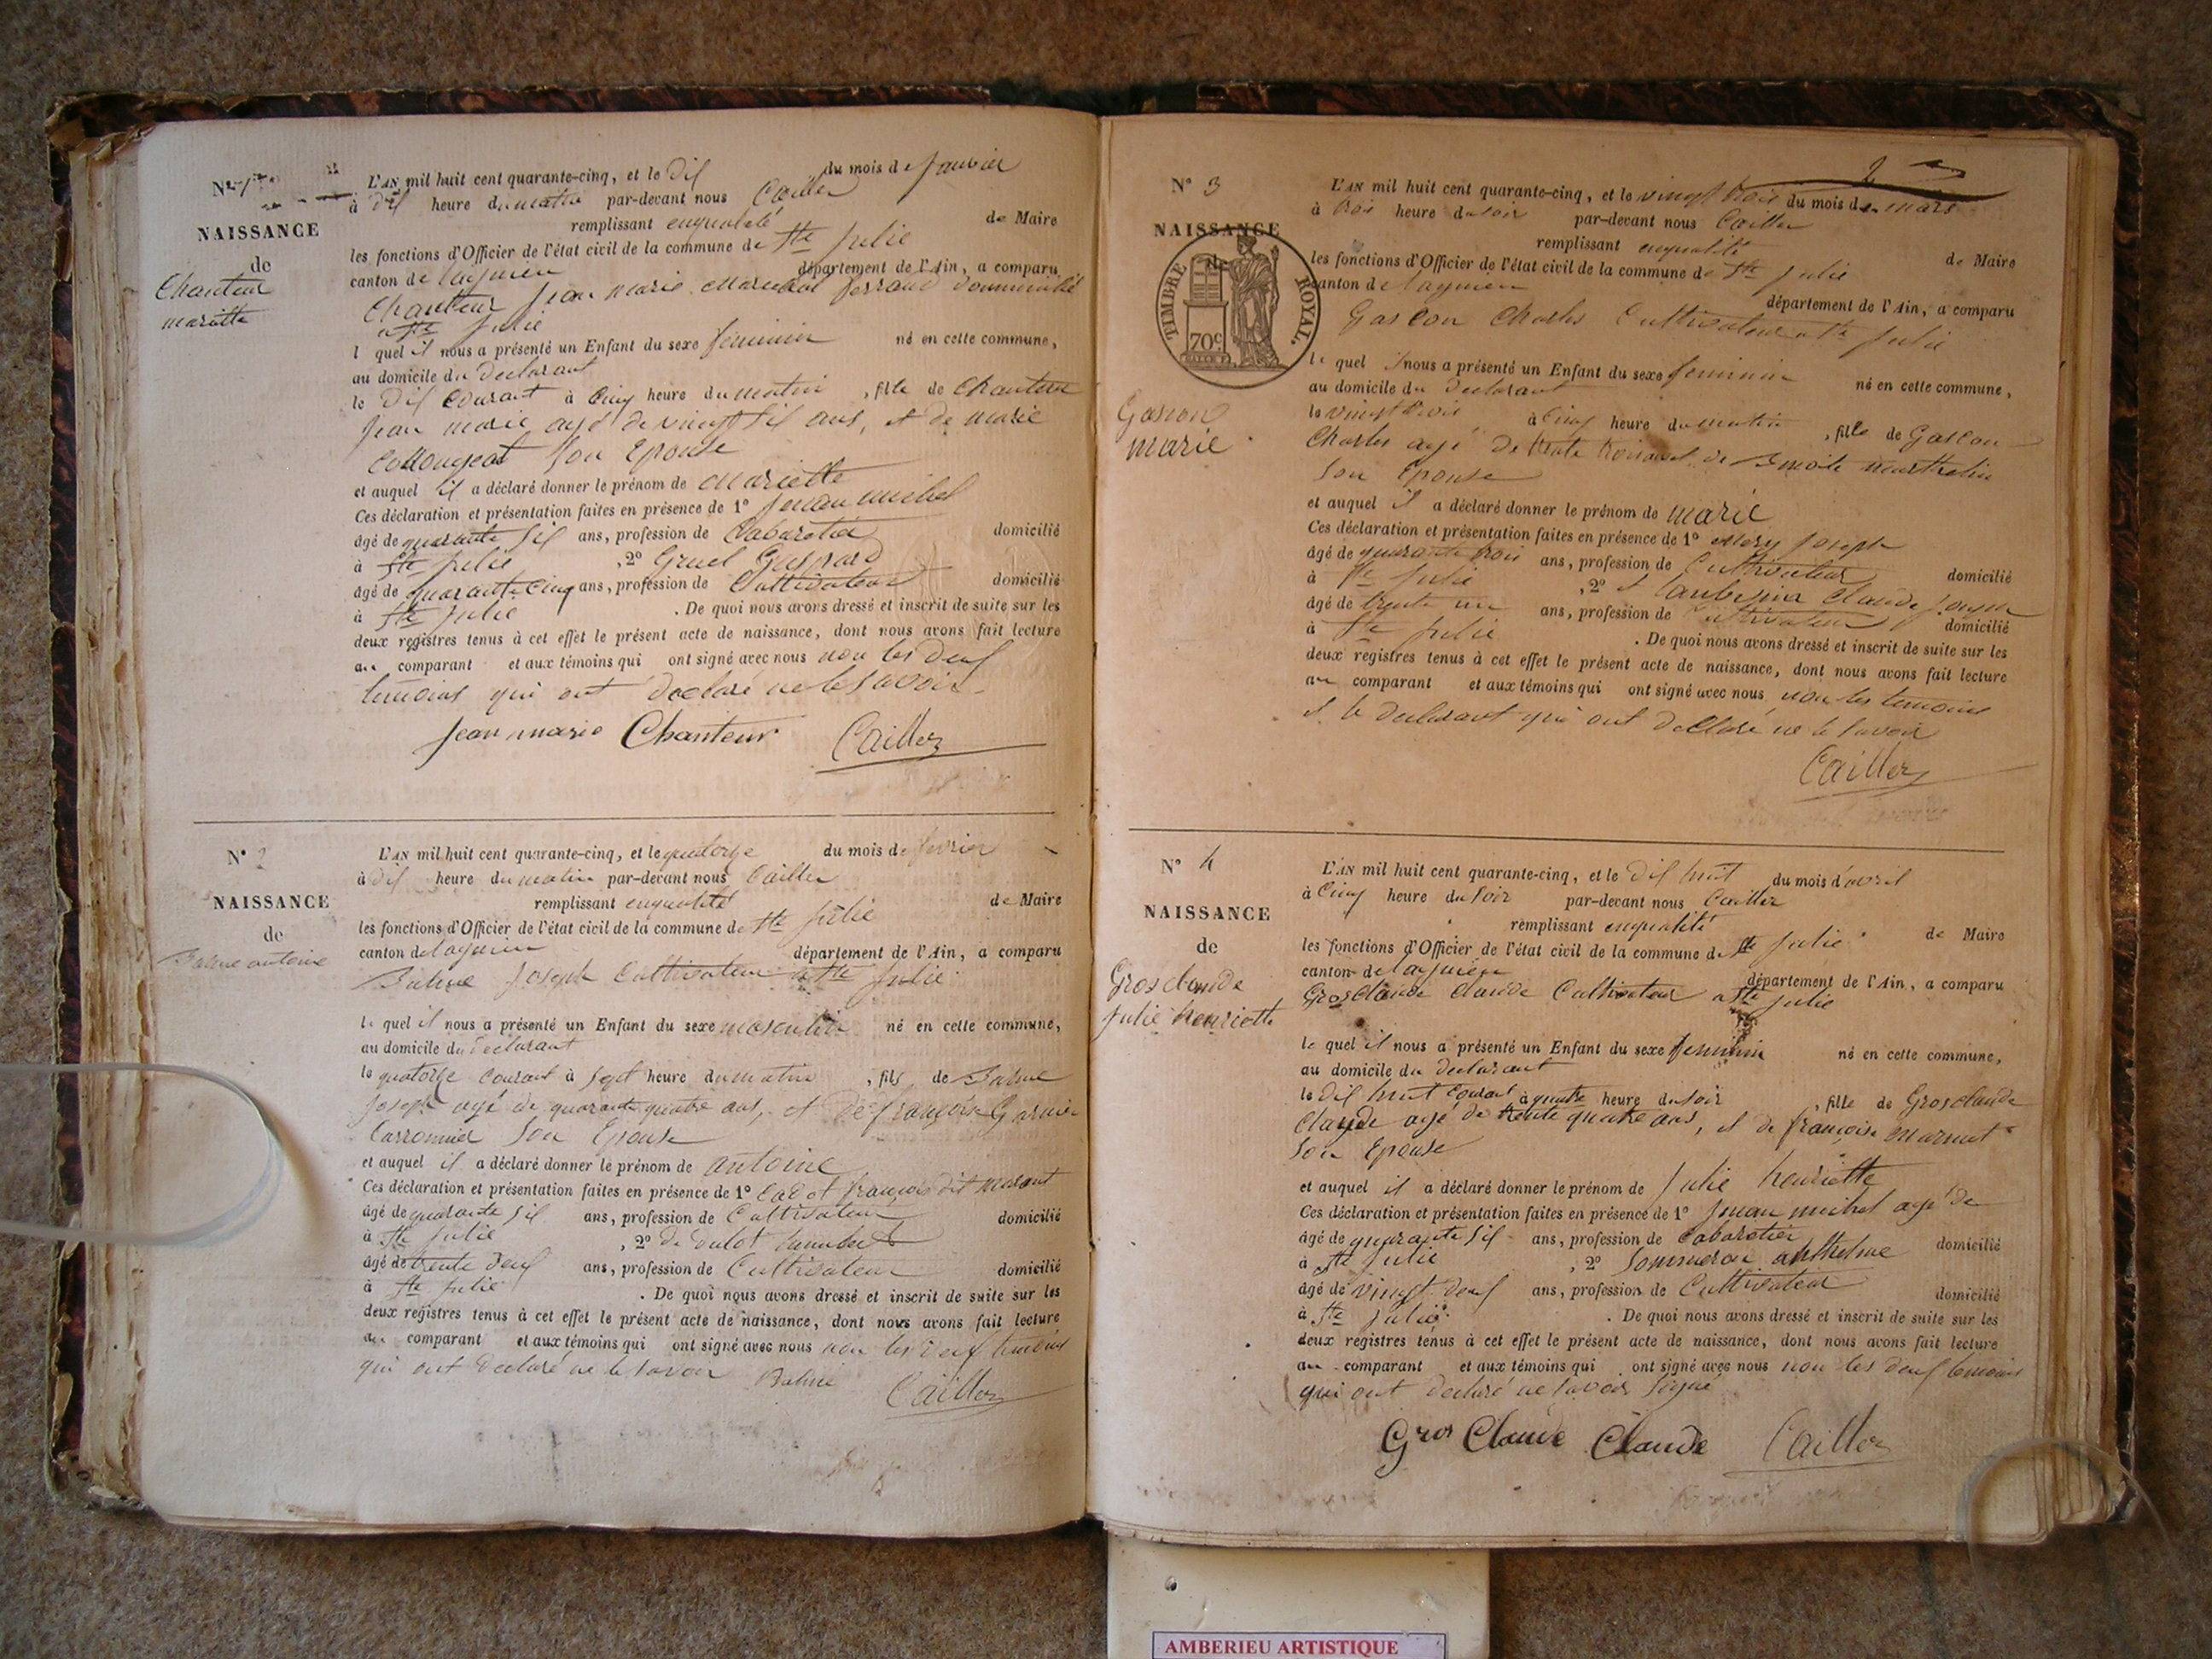 N° 1
NAISSANCE
de
Chanteur
mariette
L'AN mil huit cent quarante-cinq, et le dix du mois de Janvier
à dix heure du matin par-devant nous Cailler
remplissant enqualité de Maire
les fonctions d'Officier de l'état civil de la commune de Ste Julie
canton de lagnieu département de l'Ain, a comparu
Chanteur Jean marie Marechal ferrand
a Ste Julie
l quel il nous a présenté un Enfant du sexe feminin né en cette commune,
au domicile du declarant
le dix courant à cinq heure du matin, fille de Chanteur
Jean marie agé de vingt six ans, et de marie
son Epouse
et auquel il a déclaré donner le prénom de mariette
Ces déclaration et présentation faites en présence de 1° michel
âgé de quarante six ans, profession de Cabaretier domicilié
à Ste Julie, 2° Gruel Guspard
âgé de quarante cinq ans, profession de Cultivateur domicilié
à Ste Julie. De quoi nous avons dressé et inscrit de suite sur les
deux registres tenus à cet effet le présent acte de naissance, dont nous avons fait lecture
au comparant et aux témoins qui ont signé avec nous non les deux
temoins qui ont declaré ne le savoir
Jean marie Chanteur Cailler
N° 2
NAISSANCE
de
Balme antoine
L'AN mil huit cent quarante-cinq, et le quatorze du mois de fevrier
à dix heure du matin par-devant nous Cailler
remplissant enqualité de Maire
les fonctions d'Officier de l'état civil de la commune de Ste Julie
canton de lagnieu département de l'Ain, a comparu
Balme Joseph Cultivateur a Ste Julie
le quel il nous a présenté un Enfant du sexe masculin né en cette commune,
au domicile du declarant
le quatorze courant à sept heure du matin, fils de Balme
Joseph agé de quarante quatre ans, et de françoise Garnier
son Epouse
et auquel il a déclaré donner le prénom de antoine
Ces déclaration et présentation faites en présence de 1° Cadot françois dit marant
âgé de quarante six ans, profession de Cultivateur domicilié
à Ste Julie, 2°
âgé de trente deux ans, profession de Cultivateur domicilié
à Ste Julie. De quoi nous avons dressé et inscrit de suite sur les
deux registres tenus à cet effet le présent acte de naissance, dont nous avons fait lecture
au comparant et aux témoins qui ont signé avec nous non les deux temoins
qui ont declaré ne le savoir Balme Cailler
2
N° 3
NAISSANCE
de
TIMBRE ROYAL.
70c
Gascon
marie
L'AN mil huit cent quarante-cinq, et le vingt trois du mois de mars
à trois heure du soir par-devant nous Cailler
remplissant enqualité de Maire
les fonctions d'Officier de l'état civil de la commune de Ste Julie
canton de lagnieu département de l'Ain, a comparu
Gascon Charles Cultivateur a Ste Julie
le quel il nous a présenté un Enfant du sexe feminin né en cette commune,
au domicile du declarant
le vingt trois à cinq heure du matin, fille de Gascon
Charles agé de trente trois ans et de Benoite
son Epouse
et auquel il a déclaré donner le prénom de marie
Ces déclaration et présentation faites en présence de 1° Joseph
âgé de quarante trois ans, profession de Cultivateur domicilié
à Ste Julie, 2° et Claude Joseph
âgé de trente un ans, profession de Cultivateur domicilié
à Ste Julie. De quoi nous avons dressé et inscrit de suite sur les
deux registres tenus à cet effet le présent acte de naissance, dont nous avons fait lecture
au comparant et aux témoins qui ont signé avec nous, non les temoins
et le declarant qui ont declaré ne le savoir
Cailler
N° 4
NAISSANCE
de
Grosclaude
Julie henriette
L'AN mil huit cent quarante-cinq, et le dix huit du mois d'avril
à Cinq heure du soir par-devant nous Cailler
remplissant enqualité de Maire
les fonctions d'Officier de l'état civil de la commune de Ste Julie
canton de lagnieu département de l'Ain, a comparu
Grosclaude Claude Cultivateur a Ste Julie
le quel il nous a présenté un Enfant du sexe feminin né en cette commune,
au domicile du declarant
le dix huit courant à quatre heure du soir, fille de Grosclaude
Claude agé de trente quatre ans, et de françoise
son Epouse
et auquel il a déclaré donner le prénom de Julie henriette
Ces déclaration et présentation faites en présence de 1° michel agé de
âgé de quarante six ans, profession de Cabaretier domicilié
à Ste Julie, 2° Sommeron anthelme
âgé de vingt deux ans, profession de Cultivateur domicilié
à Ste Julie. De quoi nous avons dressé et inscrit de suite sur les
deux registres tenus à cet effet le présent acte de naissance, dont nous avons fait lecture
au comparant et aux témoins qui ont signé avec nous non les deux temoins
qui ont declaré ne savoir signé
Gros Claude Claude Cailler
AMBERIEU ARTISTIQUE